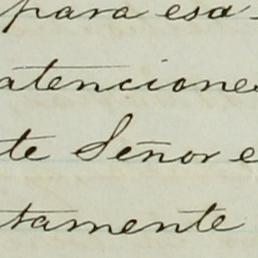 para esa
atencione
te Señor e
tamente